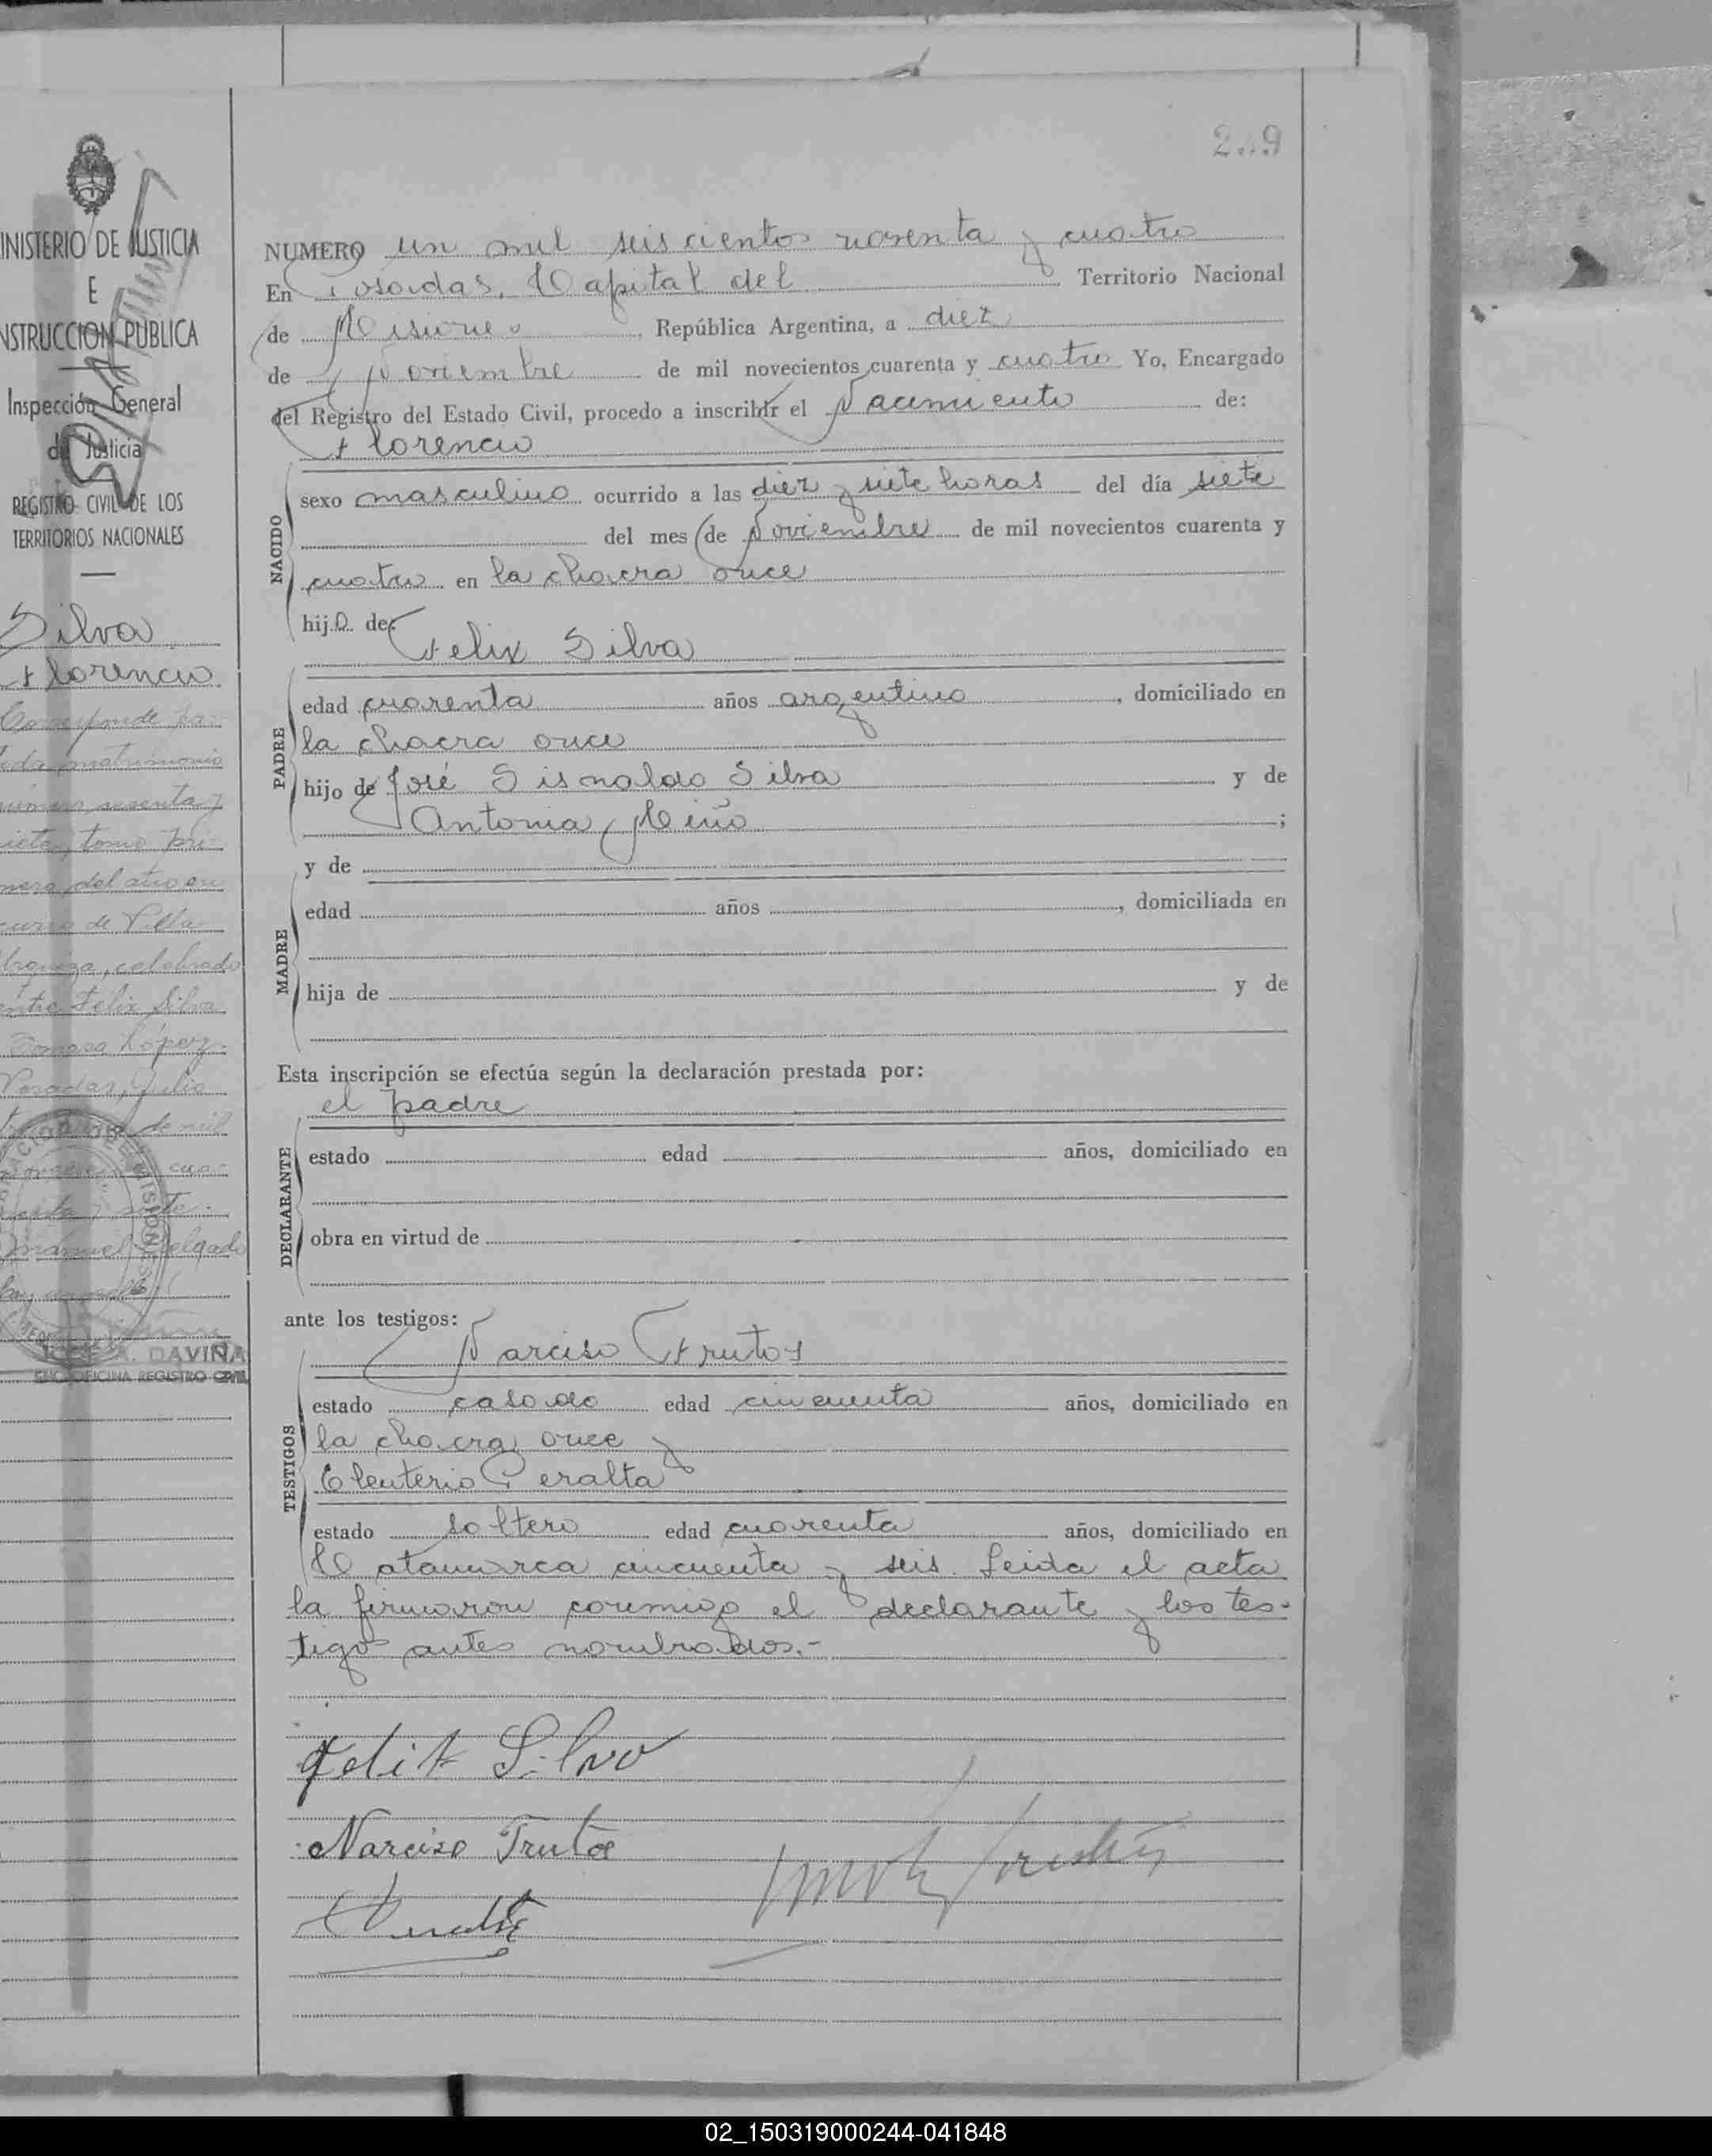 249
INISTERIO DE JUSTICIA
E
NSTRUCCION PUBLICA
Inspección General
de Justicia
REGISTRO CIVIL DE LOS
TERRITORIOS NACIONALES
Silva
Florencio
Corresponde par-
ida matrimonio
número sesenta y
siete, tomo pri-
mero del año en
curso de Villa
celebrado
entre Felix Silva
Tomasa López.
Posadas, Julio
de mil
novecientos cua-
renta y siete.
Manuel Delgado
DAVIÑA
ENC. OFICINA REGISTRO CIVIL
NUMERO un mil seiscientos noventa y cuatro
En Posadas, Capital del Territorio Nacional
de Misiones, República Argentina, a diez
de Noviembre de mil novecientos cuarenta y cuatro Yo, Encargado
del Registro del Estado Civil, procedo a inscribir el Nacimiento de:
Florencio
NACIDO
sexo masculino ocurrido a las diez y siete horas del día siete
del mes de Noviembre de mil novecientos cuarenta y
cuatro en la chacra once
hijo de:
Felix Silva
PADRE
edad cuarenta años argentino, domiciliado en
la chacra once
hijo de José Sisnaldo Silva y de
Antonia Miño;
y de
MADRE
edad años, domiciliada en
hija de y de
Esta inscripción se efectúa según la declaración prestada por:
el padre
DECLARANTE
estado edad años, domiciliado en
obra en virtud de
ante los testigos:
Narciso Frutos
TESTIGOS
estado casado edad cincuenta años, domiciliado en
la chacra once y
Eleuterio Peralta
estado soltero edad cuarenta años, domiciliado en
Catamarca cincuenta y seis. Leida el acta
la firmaron conmigo el declarante y los tes-
tigos antes nombrados.-
Felix Silva
Narciso Frutos
02_150319000244-041848